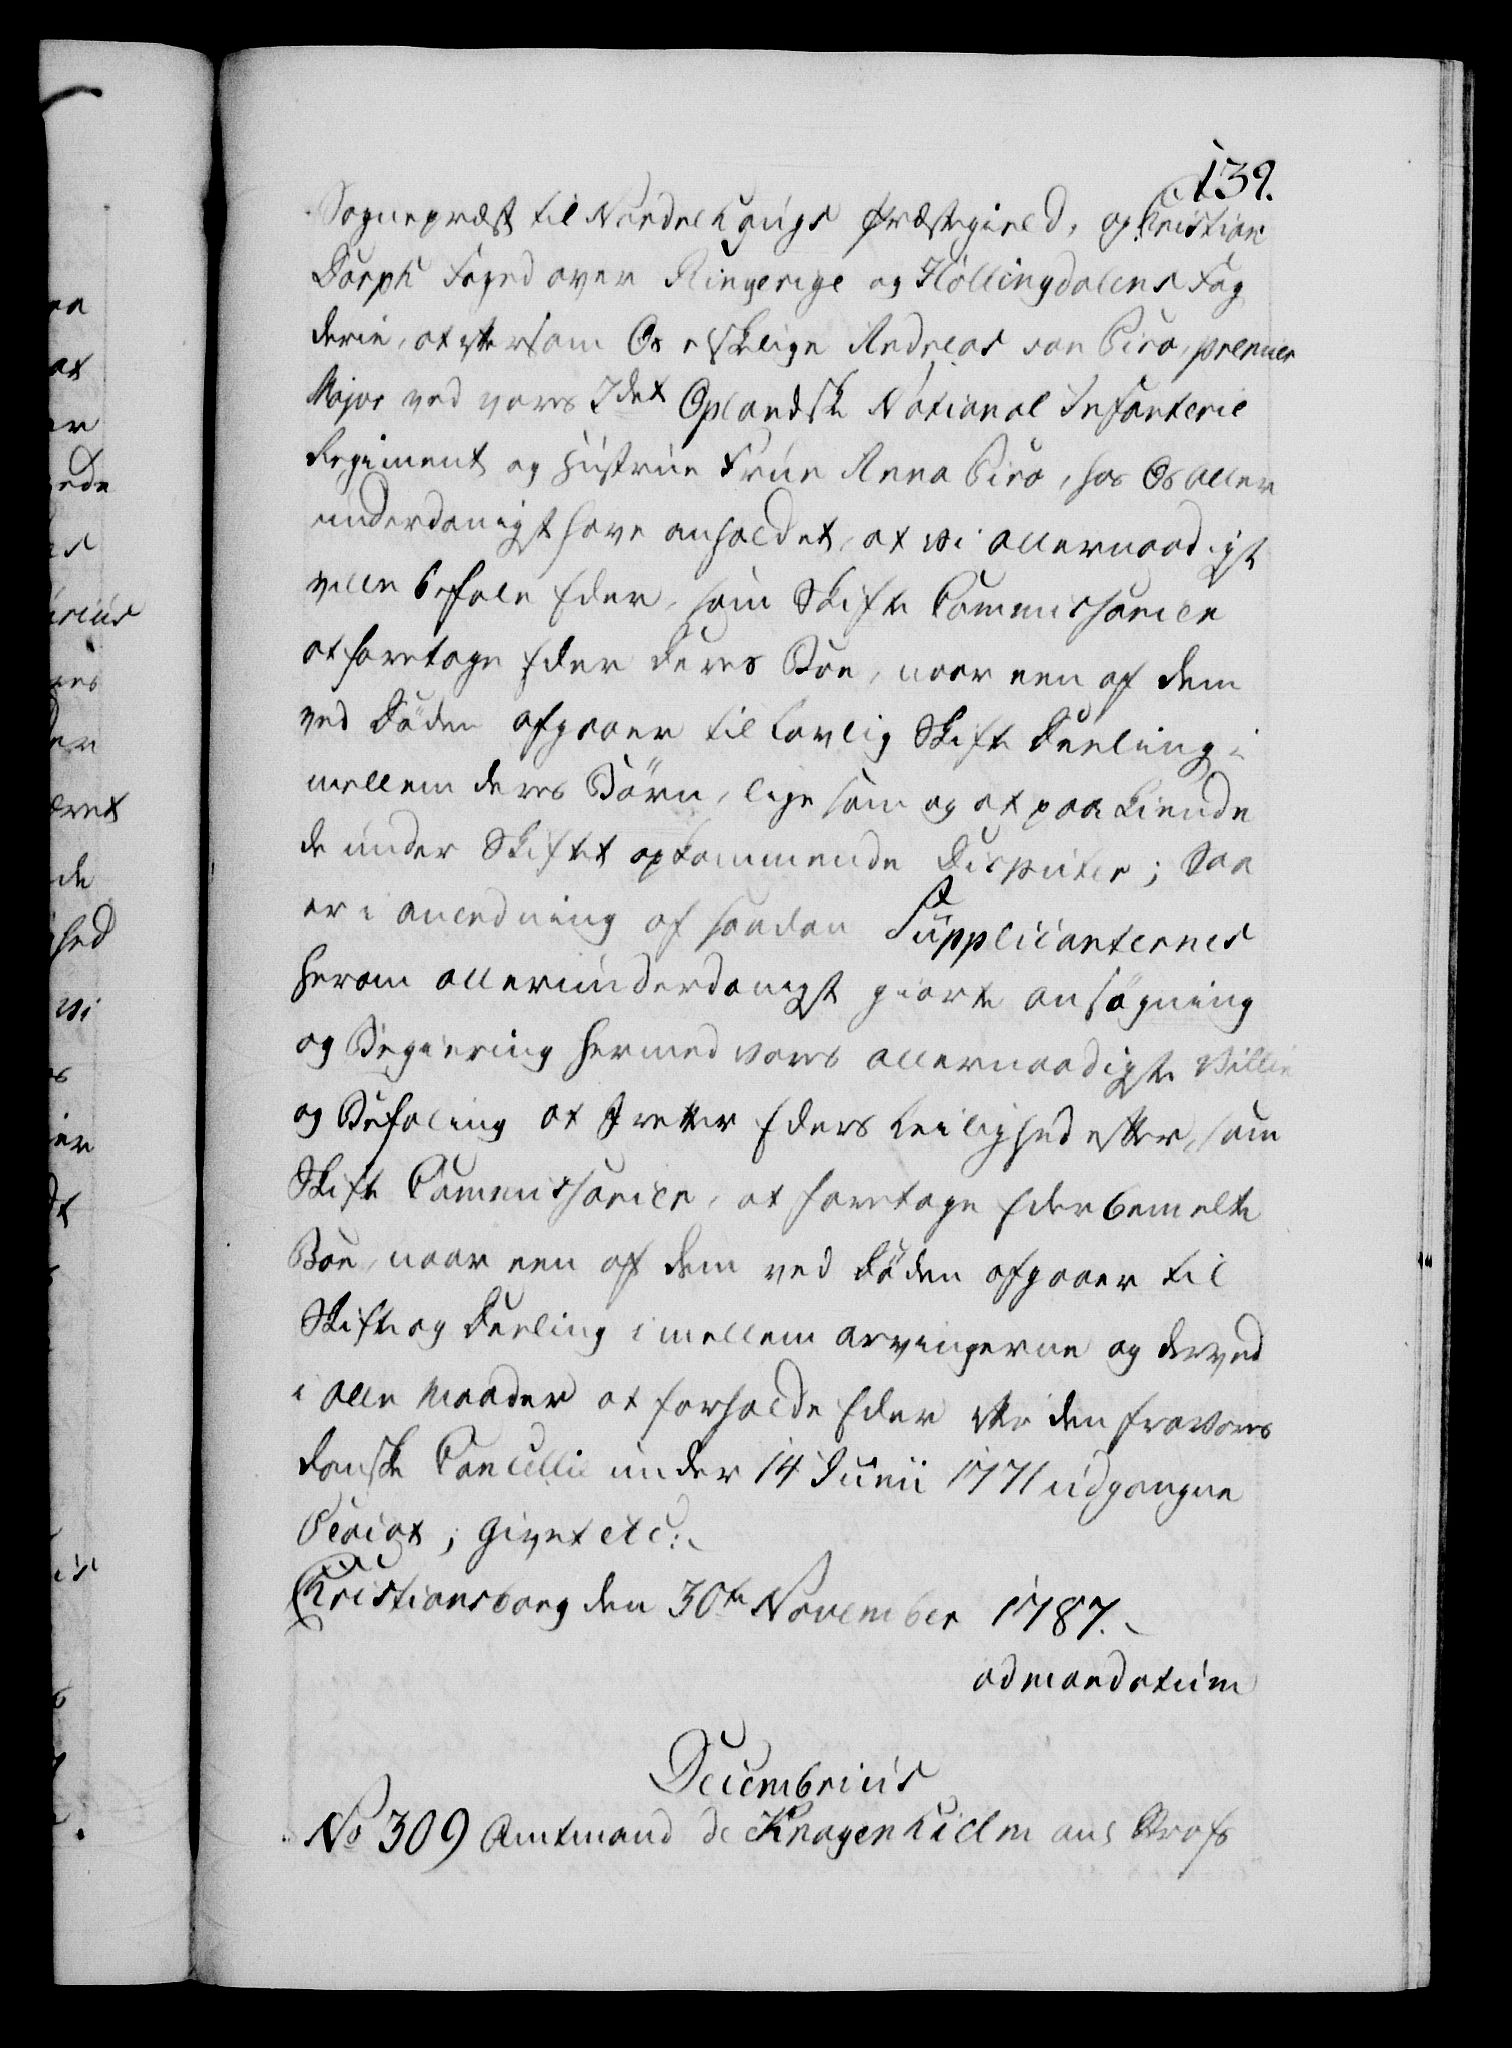 139.
Sognepræst til Nordrehougs Præstegield, og Christian
Dorph Foged over Ringerige og Hallingdalens Fog
derie, at eftersom Os elskelige Andreas von Piro, premier
Major ved vores 2det Oplandsk National Infanterie
Regiment og Hustrue Frue Anna Piro, hos Os aller
underdanigst have anholdet, at Vi allernaadigst
ville befale Eder, som Skifte Commissarier
at foretage Eder deres Boe, naar een af dem
ved Döden afgaaer til lovlig Skifte Deeling i
mellem deres Börn, lige som og at paakiende
de under Skiftet opkommende Disputer; Saa
er i anledning af saadan Supplicanternes
herom allerunderdanigst giorte ansögning
og Begiering hermed vores allernaadigste Villie
og Befaling at I retter Eders Leilighed efter, som
Skifte Commissarier, at foretage Eder bemelte
Boe, naar een af dem ved Döden afgaaer til
Skifte og Deeling imellem arvingerne og derved
i alle Maader at forholde Eder efter den fra vores
danske Cancellie under 14 Junii 1771 udgangne
Placat; Givet etc:
Christiansborg den 30te November 1787.
ad mandatum
Decembrius
No 309 Amtmand de Knagenhielm ans Provs